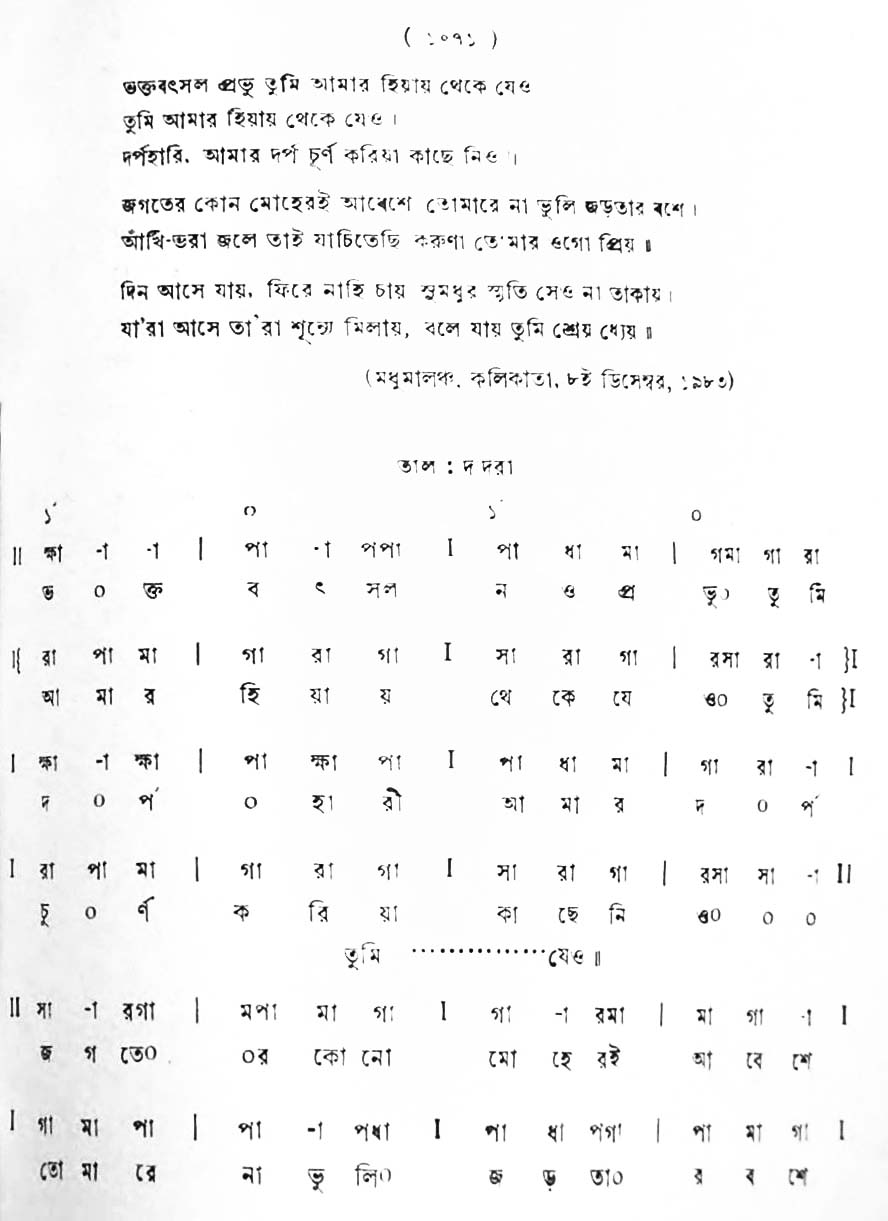 ( ১০৭১ )
ভক্তবৎসল প্রভু তুমি আমার হিয়ায় থেকে যেও
তুমি আমার হিয়ায় থেকে যেও ।
দর্পহারি, আমার দর্প চূর্ণ করিয়া কাছে নিও ।
জগতের কোন মোহেরই আবেশে তোমারে না ভুলি জড়তার বশে ।
আঁখি-ভরা জলে তাই যাচিতেছি করুণা তোমার ওগো প্রিয় ॥
দিন আসে যায়, ফিরে নাহি চায় সুমধুর স্মৃতি সেও না তাকায় ।
যা'রা আসে তা'রা শূন্যে মিলায়, বলে যায় তুমি শ্রেয় ধ্যেয় ॥
(মধুমালঞ্চ, কলিকাতা, ৮ই ডিসেম্বর, ১৯৮৩)
তাল : দ দরা
১́ ০ ১́ ০
॥ ক্ষা -া -া | পা -া পপা I পা ধা মা | গমা গা রা
ভ ০ ক্ত ব ৎ সল ন ও প্র ভু০ তু মি
॥{ রা পা মা | গা রা গা I সা রা গা | রসা রা -া }I
আ মা র হি য়া য় থে কে যে ও০ তু মি }I
I ক্ষা -া ক্ষা | পা ক্ষা পা I পা ধা মা | গা রা -া I
দ ০ র্প ০ হা রী আ মা র দ ০ র্প
I রা পা মা | গা রা গা I সা রা গা | রসা সা -া II
চূ ০ র্ণ ক রি য়া কা ছে নি ও০ ০ ০
তুমি ...............যেও ॥
II সা -া রগা | মপা মা গা I গা -া রমা | মা গা -া I
জ গ তে০ ০র কো নো মো হে রই আ বে শে
I গা মা পা | পা -া পধা I পা ধা পগা | পা মা গা I
তো মা রে না ভু লি০ জ ড় তা০ র ব শে